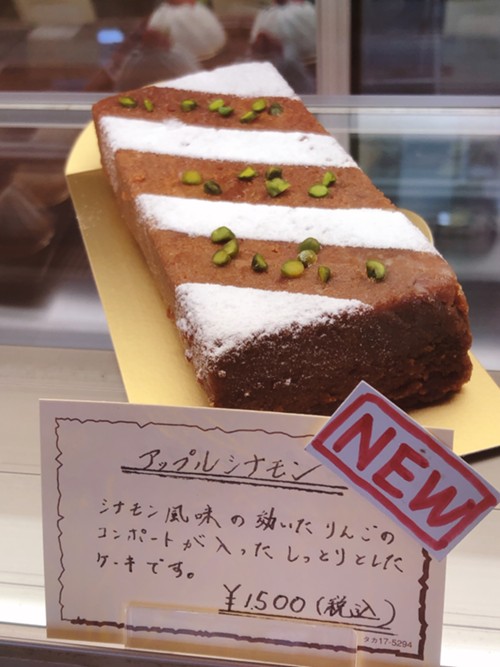 アップルシナモン
NEW
シナモン風味の効いたりんごの
コンポートが入ったしっとりとした
ケーキです。
¥1,500(税込)
タカ17-5294